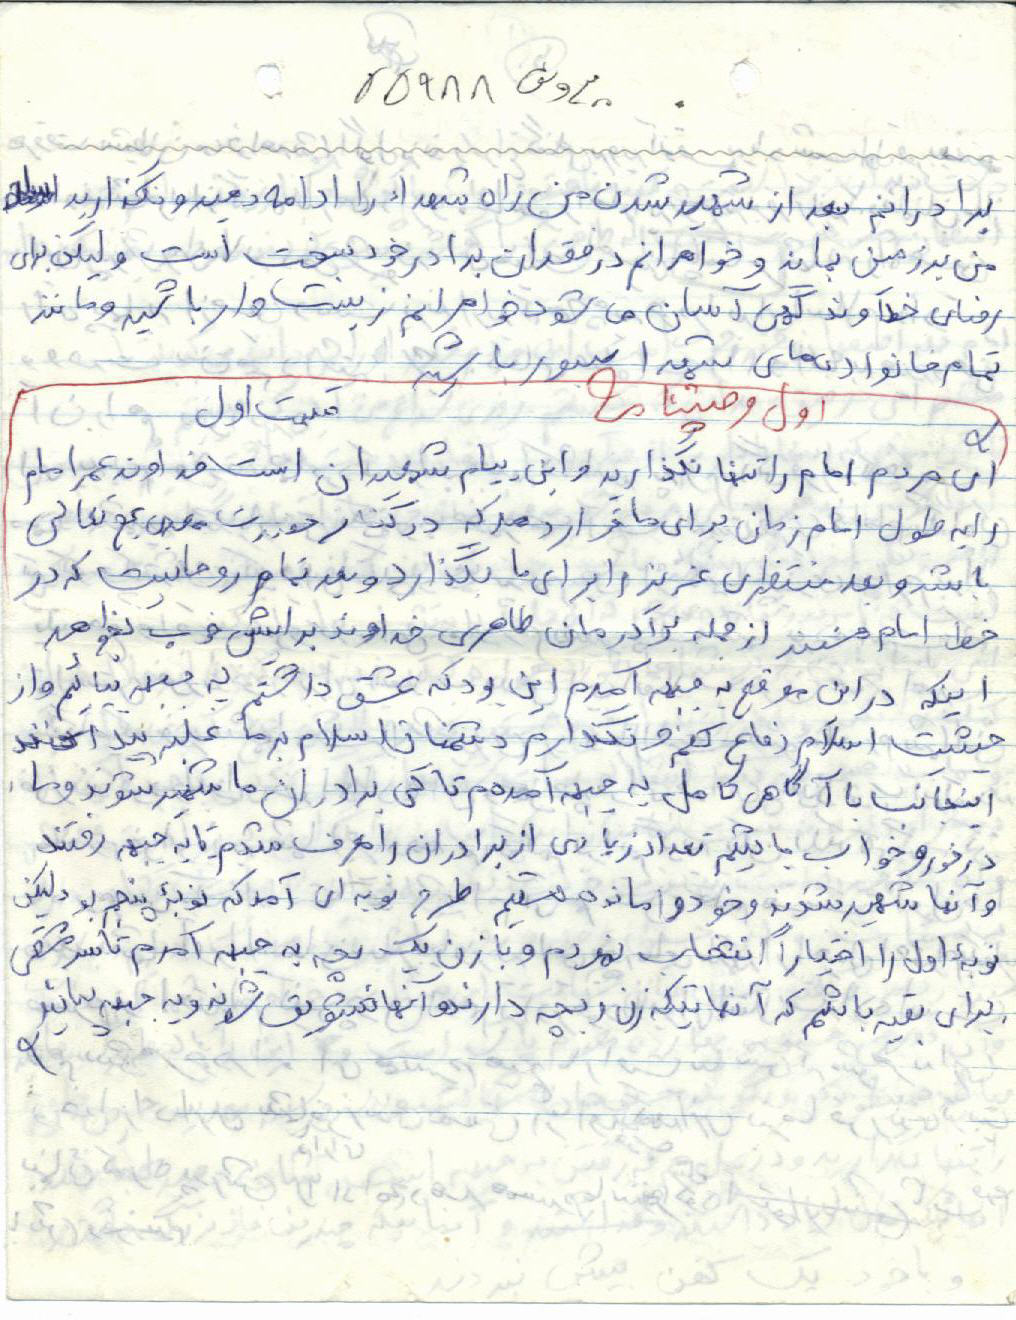 ۲۵۹۸۸
برادرانم بعد از شهید شدن من راه شهداء را ادامه دهید و نگذارید
من بر زمین بماند و خواهرانم در فقدان برادر خود سخت است ولیکن برای
رضای خداوند کمی آسان می شود خواهرانم زینب وار باشید و مانند
تمام خانواده های شهدا صبور باشید
اول وصیتنامه قسمت اول
ای مردم امام را تنها نگذارید و این پیام شهیدان است خداوند عمر امام
را به طول امام زمان برای ما قرار دهد که در کنار حضرت مهدی عج تعالی
باشد و بعد منتظری عزیز را برای ما بگذارد و بعد تمام روحانیت که در
خط امام هستند از جمله طاهری خداوند برایش خوب بخواهد
اینکه در این موقع به جبهه آمدم این بود که عشق داشتم به جبهه بیائیم و از
حیثیت اسلام دفاع کنم و نگذارم دشمنان اسلام بر ما غلبه پیدا کنند
اینجانب با آگاهی کامل به جبهه آمدم تا کی برادران ما شهید شوند و ما
در خور و خواب باشیم تعداد زیادی از برادران را معرف شدم تا به جبهه رفتند
و آنها شهید شدند و خود وامانده هستیم طرح نوبه ای آمد که نوبۀ پنجم بود لیکن
نوبۀ اول را اختیاراً انتخاب نمودم و با زن یک بچه به جبهه آمدم تا سرمشقی
برای بقیه باشم که آنهائیکه زن و بچه دارند آنها تشویق شوند و به جبهه بیایند